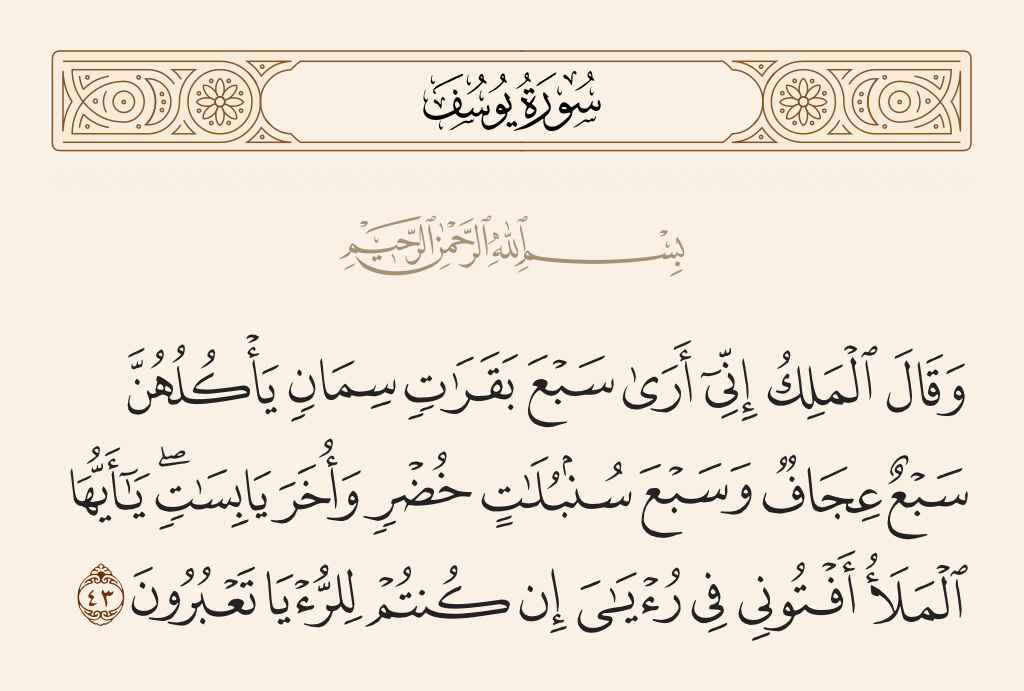 سُورَةُ يُوسُفَ
بِسْمِ ٱللَّهِ ٱلرَّحْمَٰنِ ٱلرَّحِيمِ
وَقَالَ ٱلْمَلِكُ إِنِّىٓ أَرَىٰ سَبْعَ بَقَرَٰتٍ سِمَانٍ يَأْكُلُهُنَّ
سَبْعٌ عِجَافٌ وَسَبْعَ سُنۢبُلَٰتٍ خُضْرٍ وَأُخَرَ يَابِسَٰتٍ ۖ يَٰٓأَيُّهَا
ٱلْمَلَأُ أَفْتُونِى فِى رُءْيَٰىَ إِن كُنتُمْ لِلرُّءْيَا تَعْبُرُونَ ٤٣